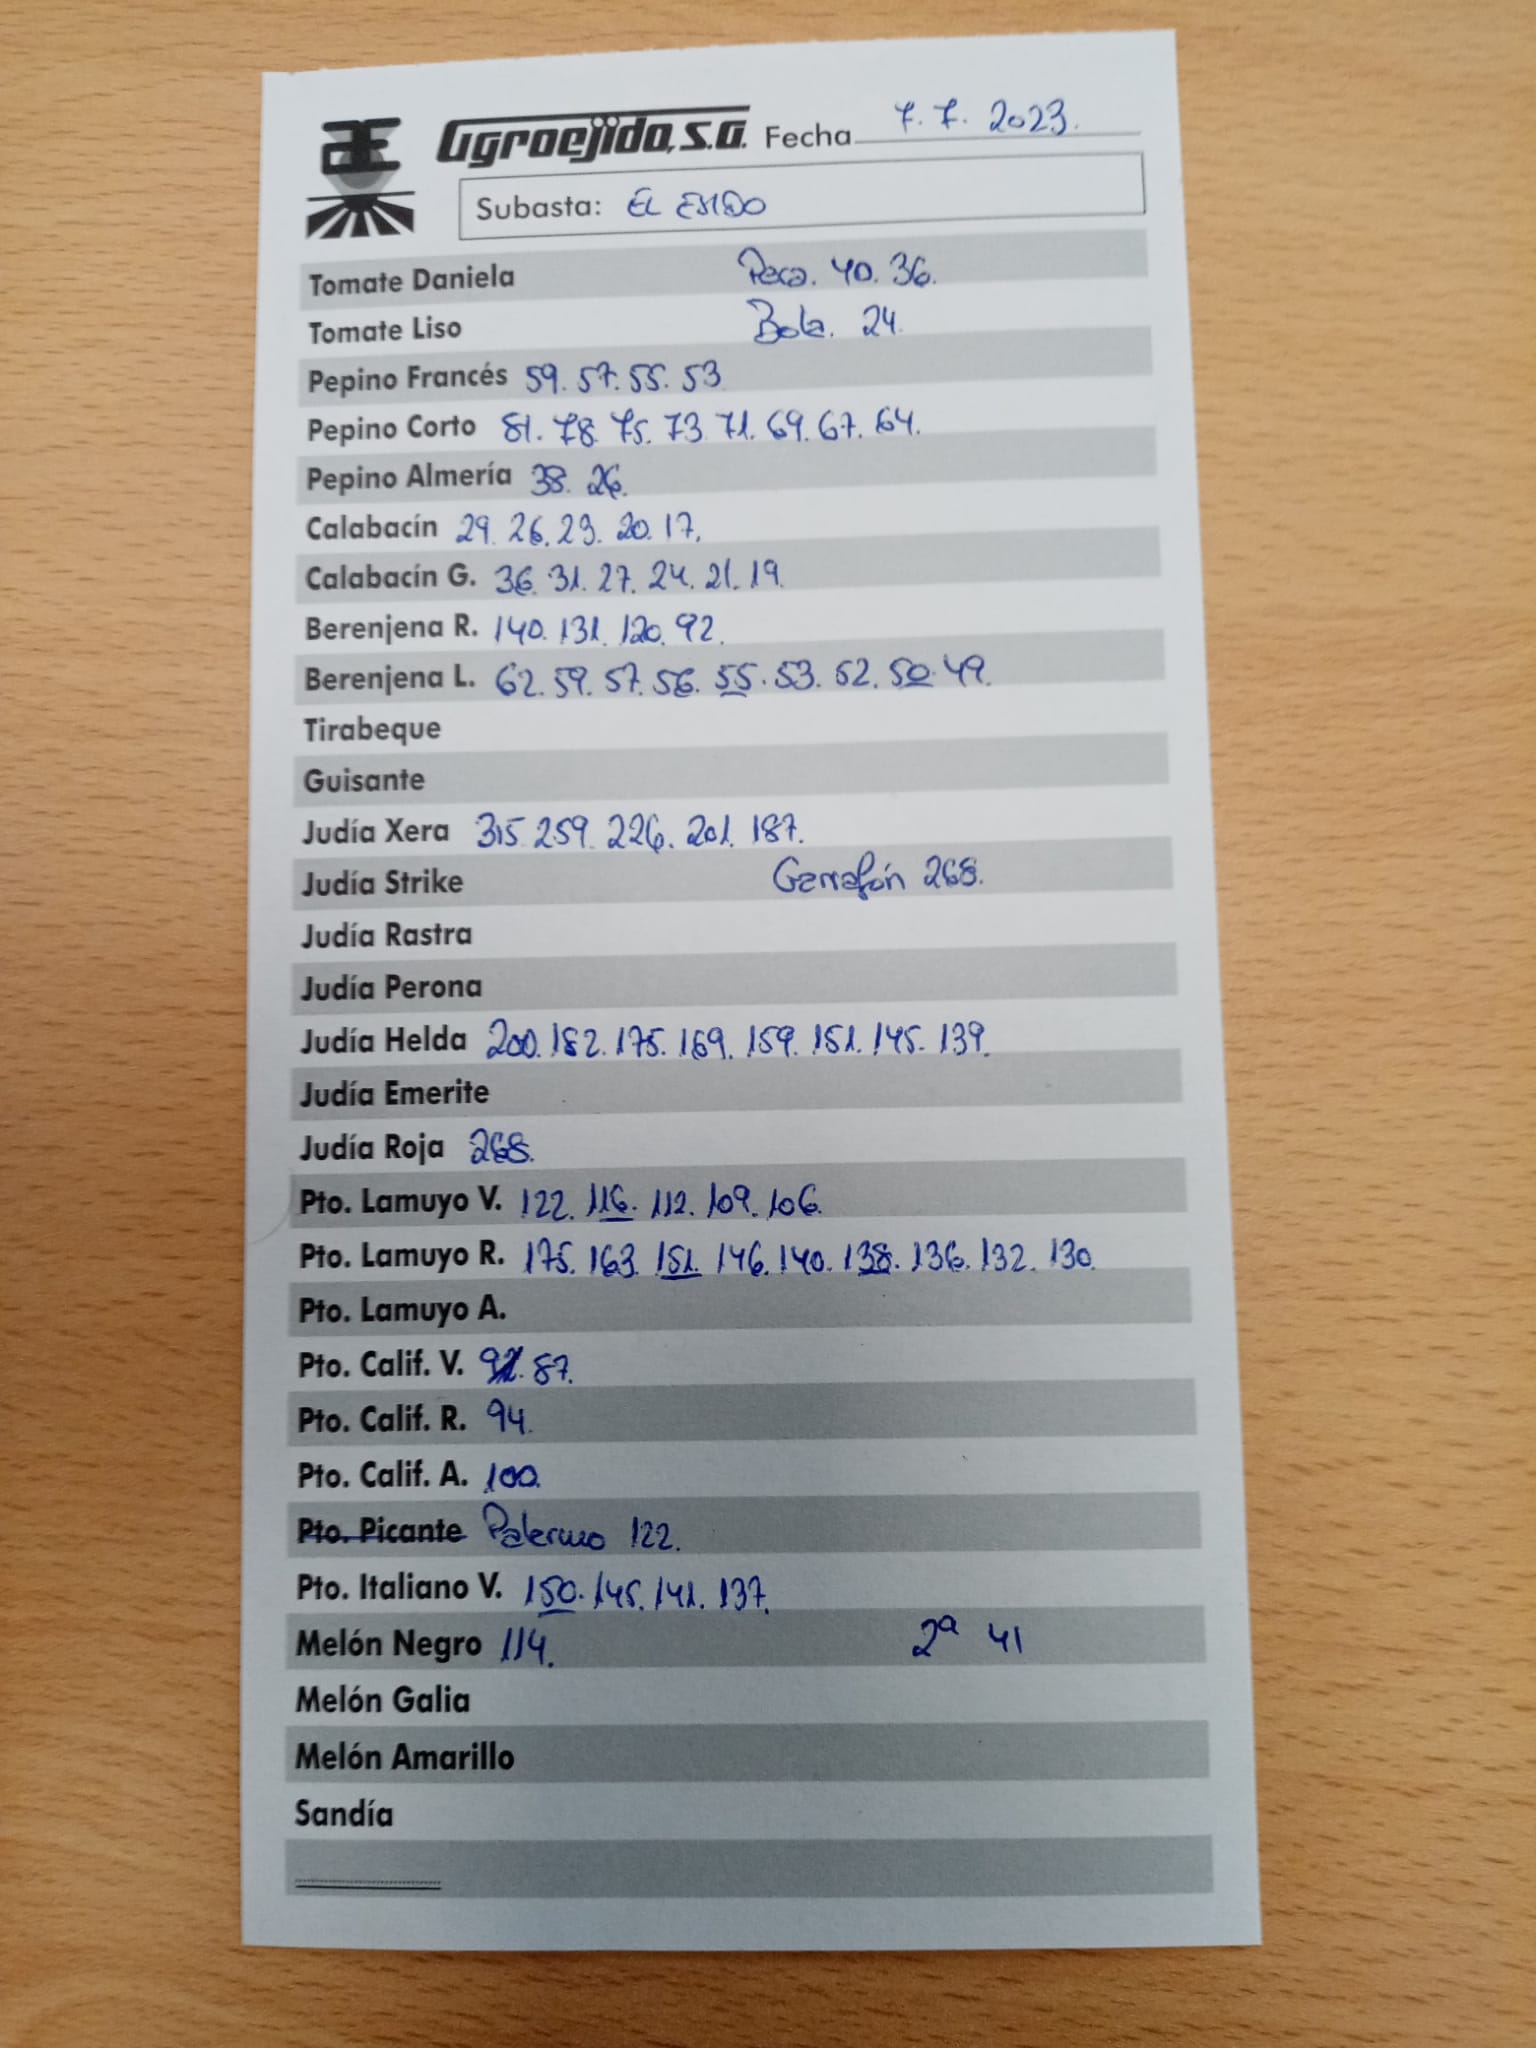 AE Agroejido, S.A. Fecha 7. 7. 2023.
Subasta: EL EJIDO
Tomate Daniela Pera. 40. 36.
Tomate Liso Bola. 24.
Pepino Francés 59. 57. 55. 53
Pepino Corto 81. 78. 75. 73. 71. 69. 67. 64.
Pepino Almería 38. 26.
Calabacín 29. 26. 23. 20. 17.
Calabacín G. 36. 31. 27. 24. 21. 19.
Berenjena R. 140. 131. 120. 92.
Berenjena L. 62. 59. 57. 56. 55. 53. 52. 50. 49.
Tirabeque
Guisante
Judía Xera 315. 259. 226. 201. 187.
Judía Strike Garrafón 268.
Judía Rastra
Judía Perona
Judía Helda 200. 182. 175. 169. 159. 151. 145. 139.
Judía Emerite
Judía Roja 268.
Pto. Lamuyo V. 122. 116. 112. 109. 106.
Pto. Lamuyo R. 175. 163. 151. 146. 140. 138. 136. 132. 130.
Pto. Lamuyo A.
Pto. Calif. V. 87.
Pto. Calif. R. 94.
Pto. Calif. A. 100.
Pto. Picante Palermo 122.
Pto. Italiano V. 150. 145. 141. 137.
Melón Negro 114. 2ª 41
Melón Galia
Melón Amarillo
Sandía